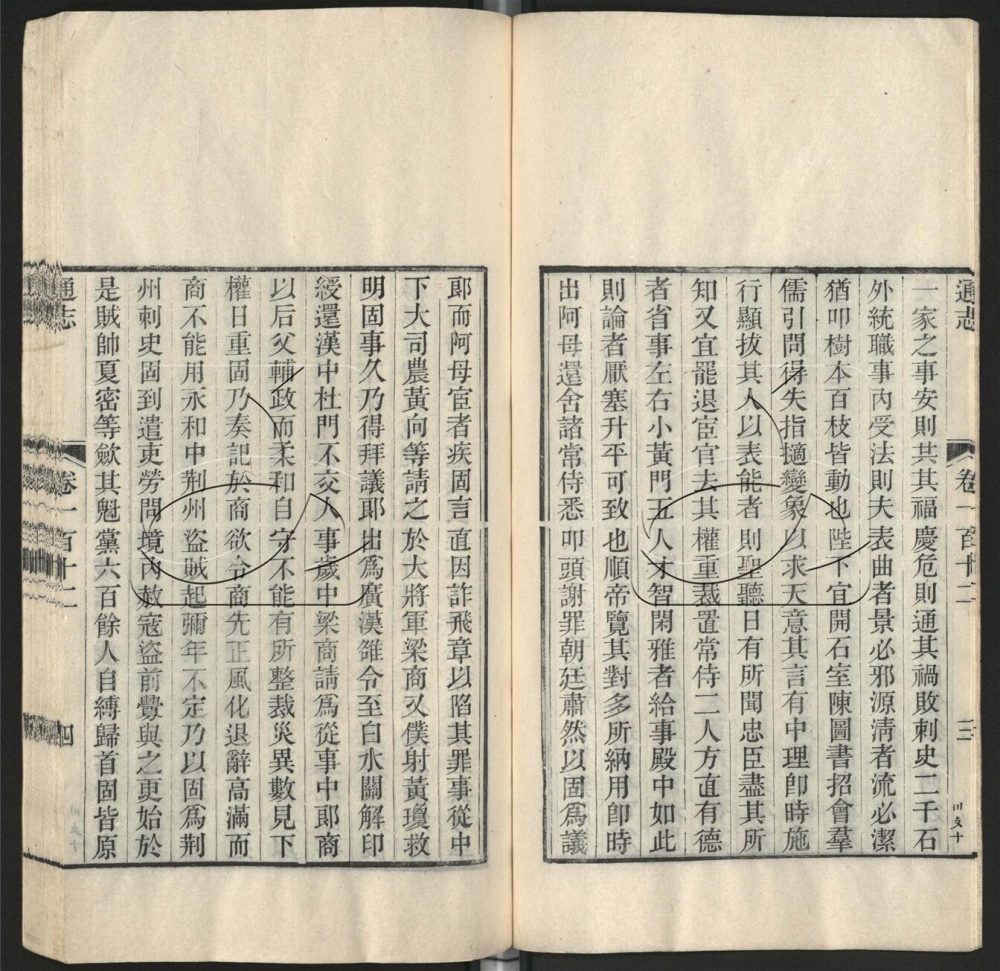 通志
卷一百十二
三
一家之事安則其其福慶危則通其禍敗刺史二千石
外統職事内受法則夫表曲者景必邪源淸者流必潔
猶叩樹本百枝皆動也陛下宜開石室陳圖書招會羣
儒引問得失指擿變象以求天意其言有中理卽時施
行顯拔其人以表能者則聖聽日有所聞忠臣盡其所
知又宜罷退宦官去其權重裁置常侍二人方直有德
者省事左右小黃門五人才智閑雅者給事殿中如此
則論者厭塞升平可致也順帝覽其對多所納用卽時
出阿母還舍諸常侍悉叩頭謝罪朝廷肅然以固爲議
郎而阿母宦者疾固言直因詐飛章以陷其罪事從中
下大司農黃向等請之於大將軍梁商又僕射黃瓊救
明固事久乃得拜議郎出爲廣漢雒令至白水關解印
綬還漢中杜門不交人事歲中梁商請爲從事中郎商
以后父輔政而柔和自守不能有所整裁災異數見下
權日重固乃奏記於商欲令商先正風化退辭高滿而
商不能用永和中荆州盜賊起彌年不定乃以固爲荆
州刺史固到遣吏勞問境內赦寇盜前釁與之更始於
是賊帥夏密等斂其魁黨六百餘人自縛歸首固皆原
通志
卷一百十二
四